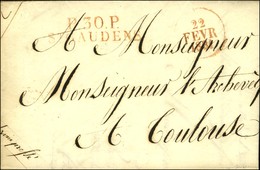 P.30.P.
ST GAUDENS
22
FEVR
A Monseigneur
Monseigneur l'Archevêq
A Toulouse